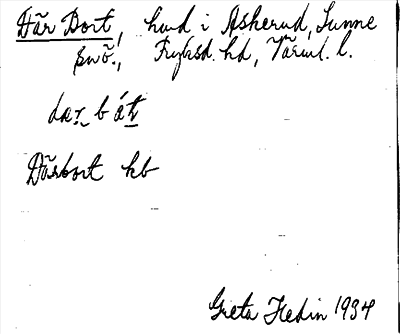 Där Bort, hmd i Askerud, Sunne
snö., Fryksd. hd, Värml. l.
dær b át
Därbort kb
Greta Hedin 1934